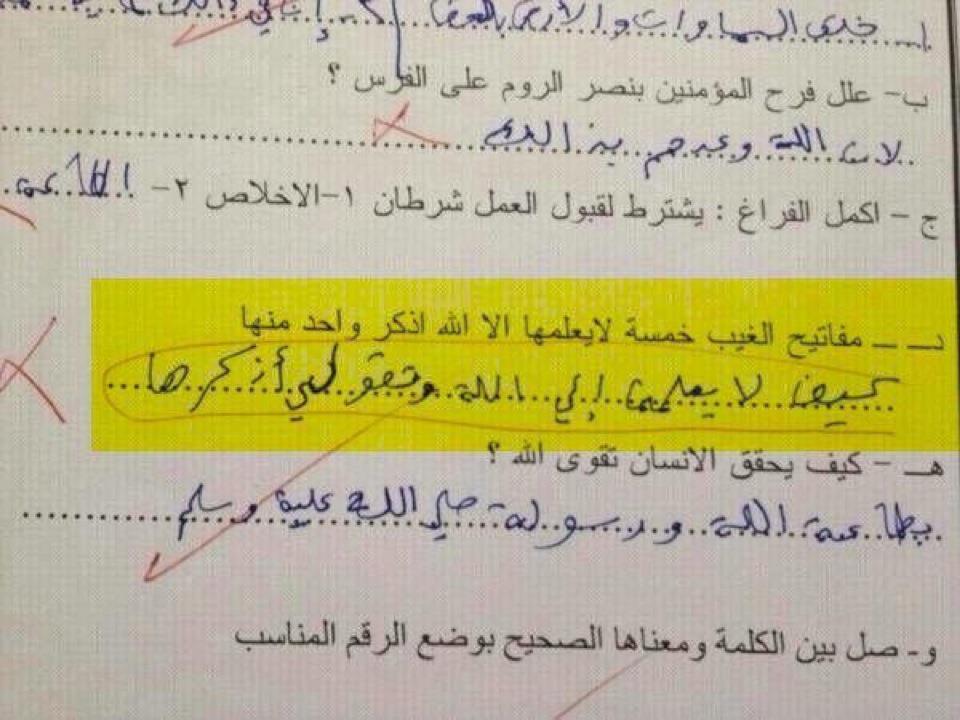 أ - خلق السماوات والأرض بالحق
ب- علل فرح المؤمنين بنصر الروم على الفرس ؟
لان اللة وعدهم بذالك
ج - اكمل الفراغ : يشترط لقبول العمل شرطان ١-الاخلاص ٢-
د - مفاتيح الغيب خمسة لايعلمها الا الله اذكر واحد منها
كيف لا يعلمها إلى اللة وتقول لي أذكرها
هـ - كيف يحقق الانسان تقوى الله ؟
بطاعة اللة ورسولة صلي اللة علية وسلم
و- صل بين الكلمة ومعناها الصحيح بوضع الرقم المناسب